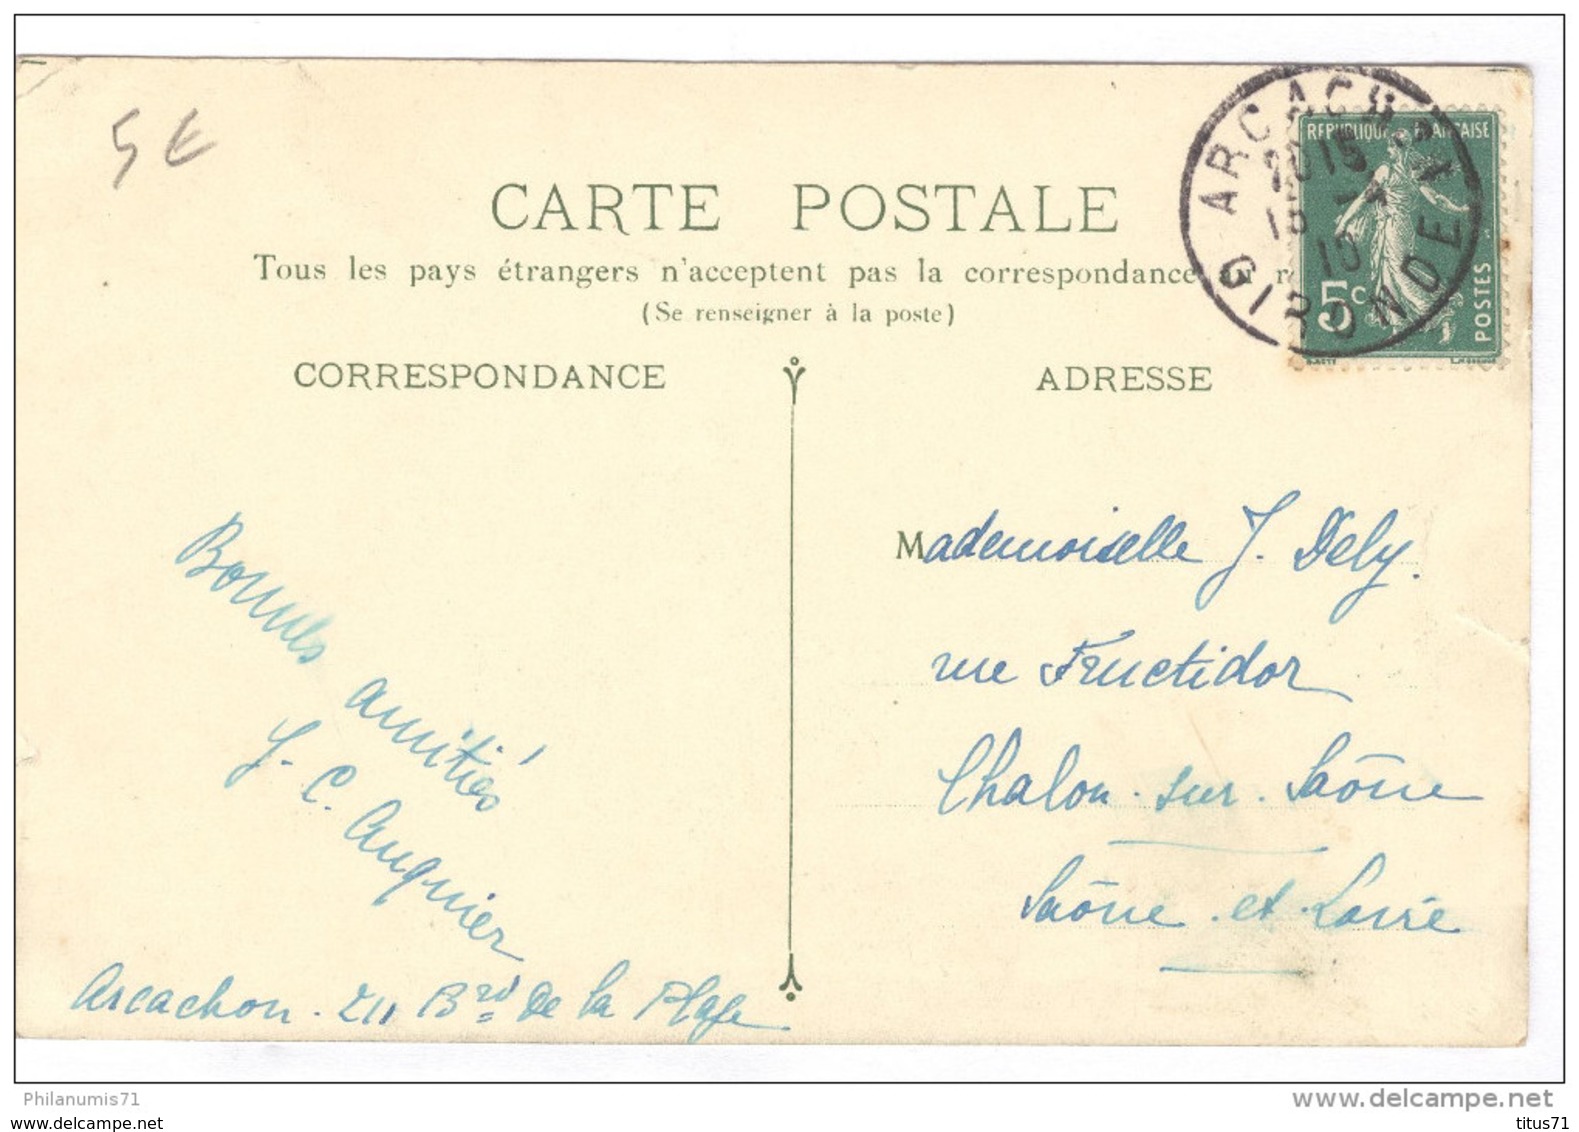 5 €
CARTE POSTALE
Tous les pays étrangers n'acceptent pas la correspondance
(Se renseigner à la poste)
CORRESPONDANCE
ADRESSE
ARCACHON
GIRONDE
10
RÉPUBLIQUE FRANÇAISE
5c
POSTES
Bonnes
amitiés
J. C. Auquier
Arcachon. 211 Brd De la Plage
Mademoiselle J. Dely.
rue Fructidor
Chalon-sur-Saône
Saône-et-Loire
Philanumis71
www.delcampe.net
www.delcampe.net
titus71